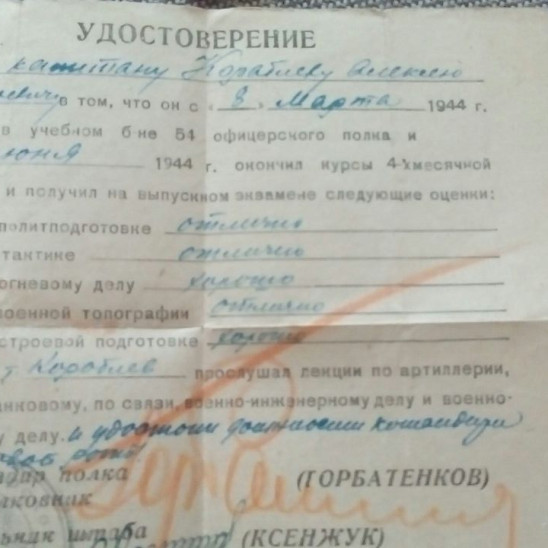 УДОСТОВЕРЕНИЕ
капитану Кораблеву Алексею
в том, что он с „8„ Марта 1944 г.
в учебном б-не 54 офицерского полка и
юня 1944 г. окончил курсы 4-хмесячной
и получил на выпускном экзамене следующие оценки:
политподготовке отлично
тактике отлично
огневому делу хорошо
военной топографии отлично
строевой подготовке хорошо
т. Кораблев прослушал лекции по артиллерии,
анковому, по связи, военно-инженерному делу и военно-
у делу. и удостоен должности командира
роты
ндир полка (ГОРБАТЕНКОВ)
лковник
льник штаба (КСЕНЖУК)